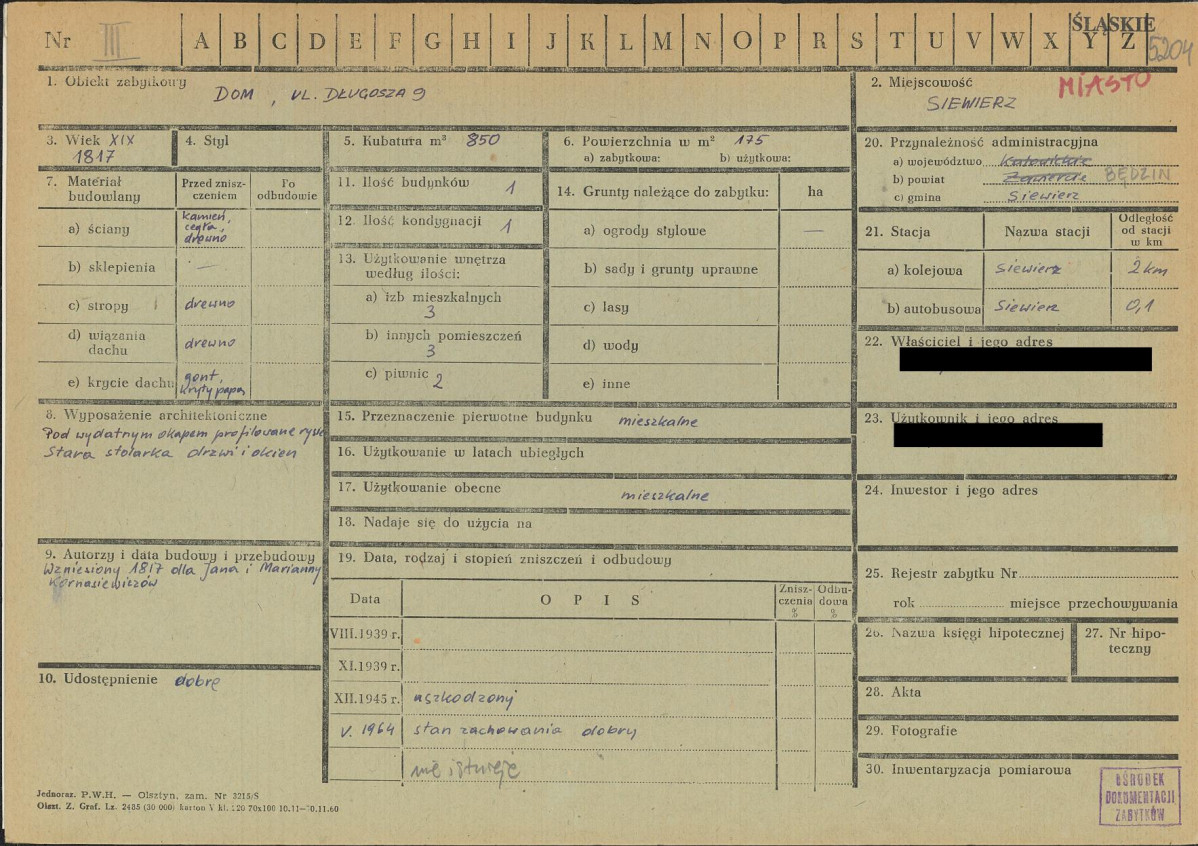 Nr III A B C D E F G H I J K L M N O P R S T U V W X Y Z
ŚLĄSKIE
5204
1. Obiekt zabytkowy
DOM, UL. DŁUGOSZA 9
2. Miejscowość
MIASTO
SIEWIERZ
3. Wiek XIX
1817
4. Styl
5. Kubatura m³ 850
6. Powierzchnia w m² 175
a) zabytkowa: b) użytkowa:
7. Materiał budowlany
Przed zniszczeniem
Po odbudowie
a) ściany
kamień,
cegła,
drewno
b) sklepienia —
c) stropy drewno
d) wiązania dachu drewno
e) krycie dachu gont,
kryty papą
8. Wyposażenie architektoniczne
Pod wydatnym okapem profilowane
Stara stolarka drzwi i okien
9. Autorzy i data budowy i przebudowy
Wzniesiony 1817 dla Jana i Marianny
Kornasiewiczów
10. Udostępnienie dobre
11. Ilość budynków 1
12. Ilość kondygnacji 1
13. Użytkowanie wnętrza
według ilości:
a) izb mieszkalnych
3
b) innych pomieszczeń
3
c) piwnic 2
14. Grunty należące do zabytku: ha
a) ogrody stylowe —
b) sady i grunty uprawne
c) lasy
d) wody
e) inne
15. Przeznaczenie pierwotne budynku mieszkalne
16. Użytkowanie w latach ubiegłych
17. Użytkowanie obecne mieszkalne
18. Nadaje się do użycia na
19. Data, rodzaj i stopień zniszczeń i odbudowy
Data OPIS Zniszczenia % Odbudowa %
VIII.1939 r.
XI.1939 r.
XII.1945 r. uszkodzony
V. 1964 stan zachowania dobry
nie istnieje
20. Przynależność administracyjna
a) województwo Katowickie
b) powiat Zawiercie BĘDZIN
c) gmina Siewierz
21. Stacja Nazwa stacji Odległość od stacji w km
a) kolejowa Siewierz 2 km
b) autobusowa Siewierz 0,1
22. Właściciel i jego adres
23. Użytkownik i jego adres
24. Inwestor i jego adres
25. Rejestr zabytku Nr
rok miejsce przechowywania
26. Nazwa księgi hipotecznej
27. Nr hipoteczny
28. Akta
29. Fotografie
30. Inwentaryzacja pomiarowa
OŚRODEK
DOKUMENTACJI
ZABYTKÓW
Jednoraz. P.W.H. — Olsztyn, zam. Nr 3215/S
Olszt. Z. Graf. Lz. 2485 (30 000) karton V kl. 220 70x100